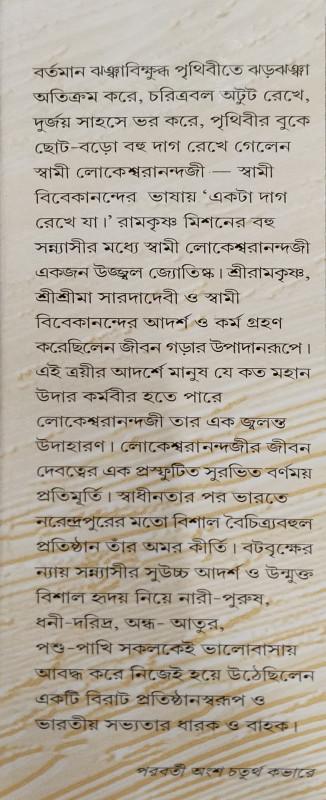 বর্তমান ঝঞ্ঝাবিক্ষুব্ধ পৃথিবীতে ঝড়ঝঞ্ঝা
অতিক্রম করে, চরিত্রবল অটুট রেখে,
দুর্জয় সাহসে ভর করে, পৃথিবীর বুকে
ছোট-বড়ো বহু দাগ রেখে গেলেন
স্বামী লোকেশ্বরানন্দজী — স্বামী
বিবেকানন্দের ভাষায় ‘একটা দাগ
রেখে যা।’ রামকৃষ্ণ মিশনের বহু
সন্ন্যাসীর মধ্যে স্বামী লোকেশ্বরানন্দজী
একজন উজ্জ্বল জ্যোতিষ্ক। শ্রীরামকৃষ্ণ,
শ্রীশ্রীমা সারদাদেবী ও স্বামী
বিবেকানন্দের আদর্শ ও কর্ম গ্রহণ
করেছিলেন জীবন গড়ার উপাদানরূপে।
এই ত্রয়ীর আদর্শে মানুষ যে কত মহান
উদার কর্মবীর হতে পারে
লোকেশ্বরানন্দজী তার এক জ্বলন্ত
উদাহারণ। লোকেশ্বরানন্দজীর জীবন
দেবত্বের এক প্রস্ফুটিত সুরভিত বর্ণময়
প্রতিমূর্তি। স্বাধীনতার পর ভারতে
নরেন্দ্রপুরের মতো বিশাল বৈচিত্র্যবহুল
প্রতিষ্ঠান তাঁর অমর কীর্তি। বটবৃক্ষের
ন্যায় সন্ন্যাসীর সুউচ্চ আদর্শ ও উন্মুক্ত
বিশাল হৃদয় নিয়ে নারী-পুরুষ,
ধনী-দরিদ্র, অন্ধ- আতুর,
পশু-পাখি সকলকেই ভালোবাসায়
আবদ্ধ করে নিজেই হয়ে উঠেছিলেন
একটি বিরাট প্রতিষ্ঠানস্বরূপ ও
ভারতীয় সভ্যতার ধারক ও বাহক।
পরবর্তী অংশ চতুর্থ কভারে